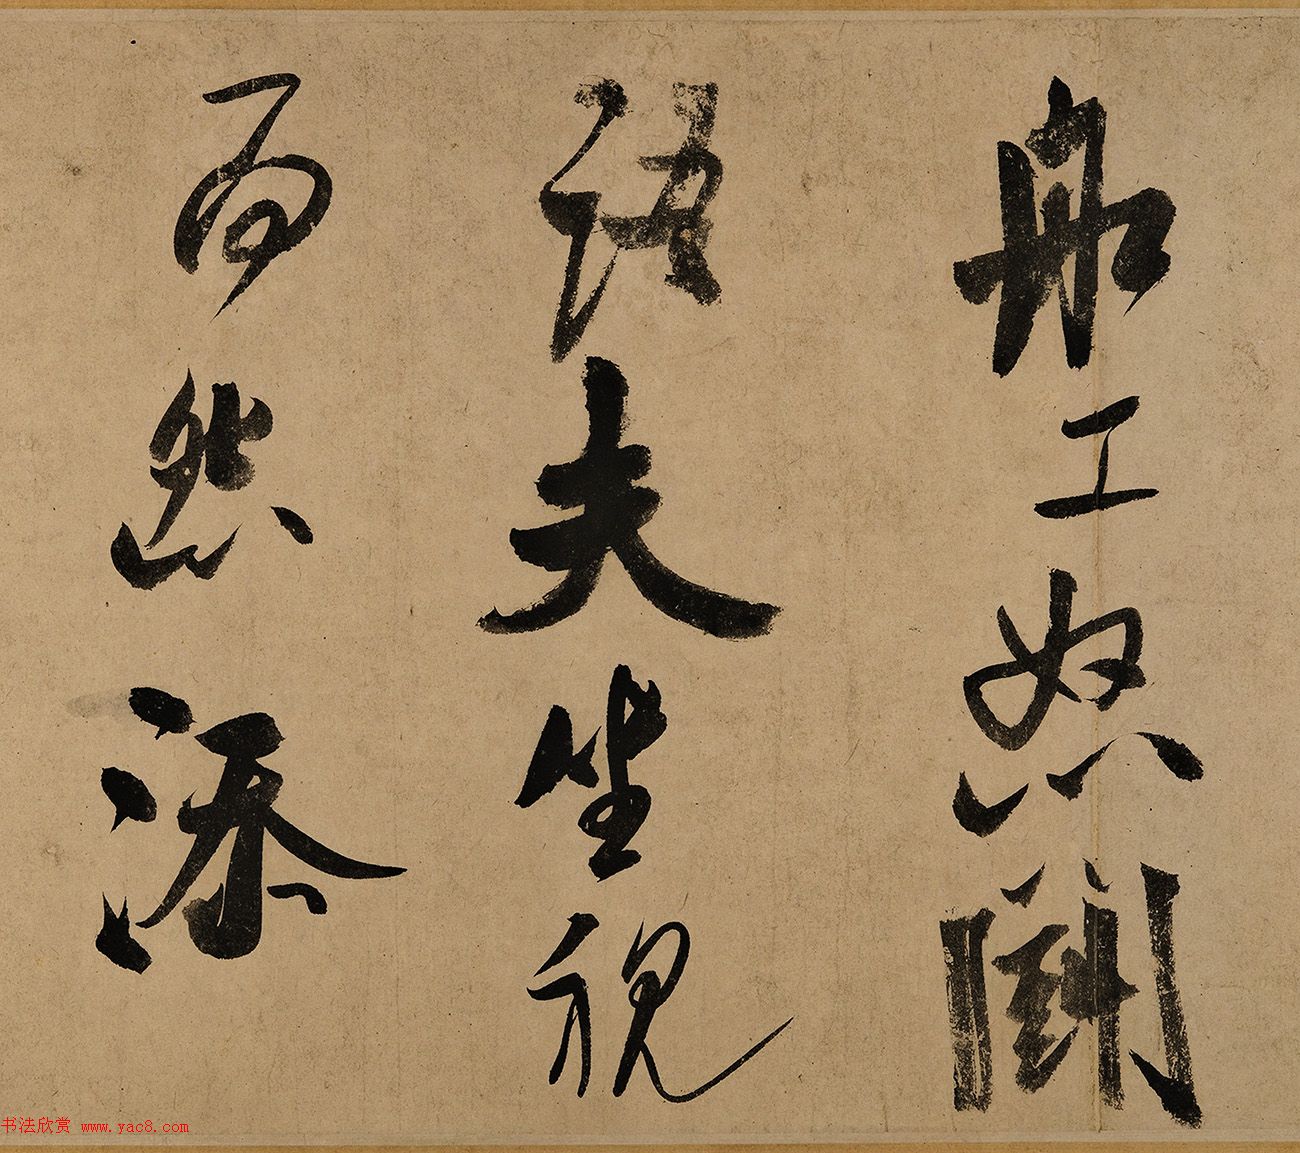 船工怒鬪
語夫坐視
而怨添
书法欣赏 www.yac8.com